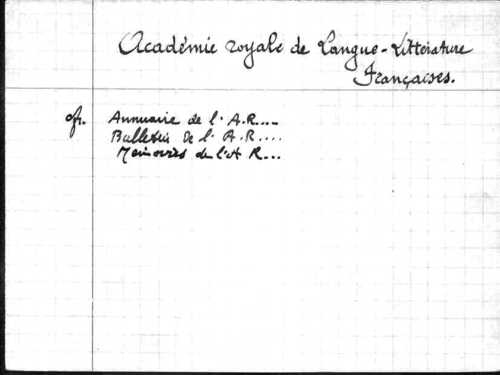 Académie royale de Langue-Littérature
Françaises.
cfr. Annuaire de l'A.R....
Bulletin de l'A.R....
Mémoires de l'A R...